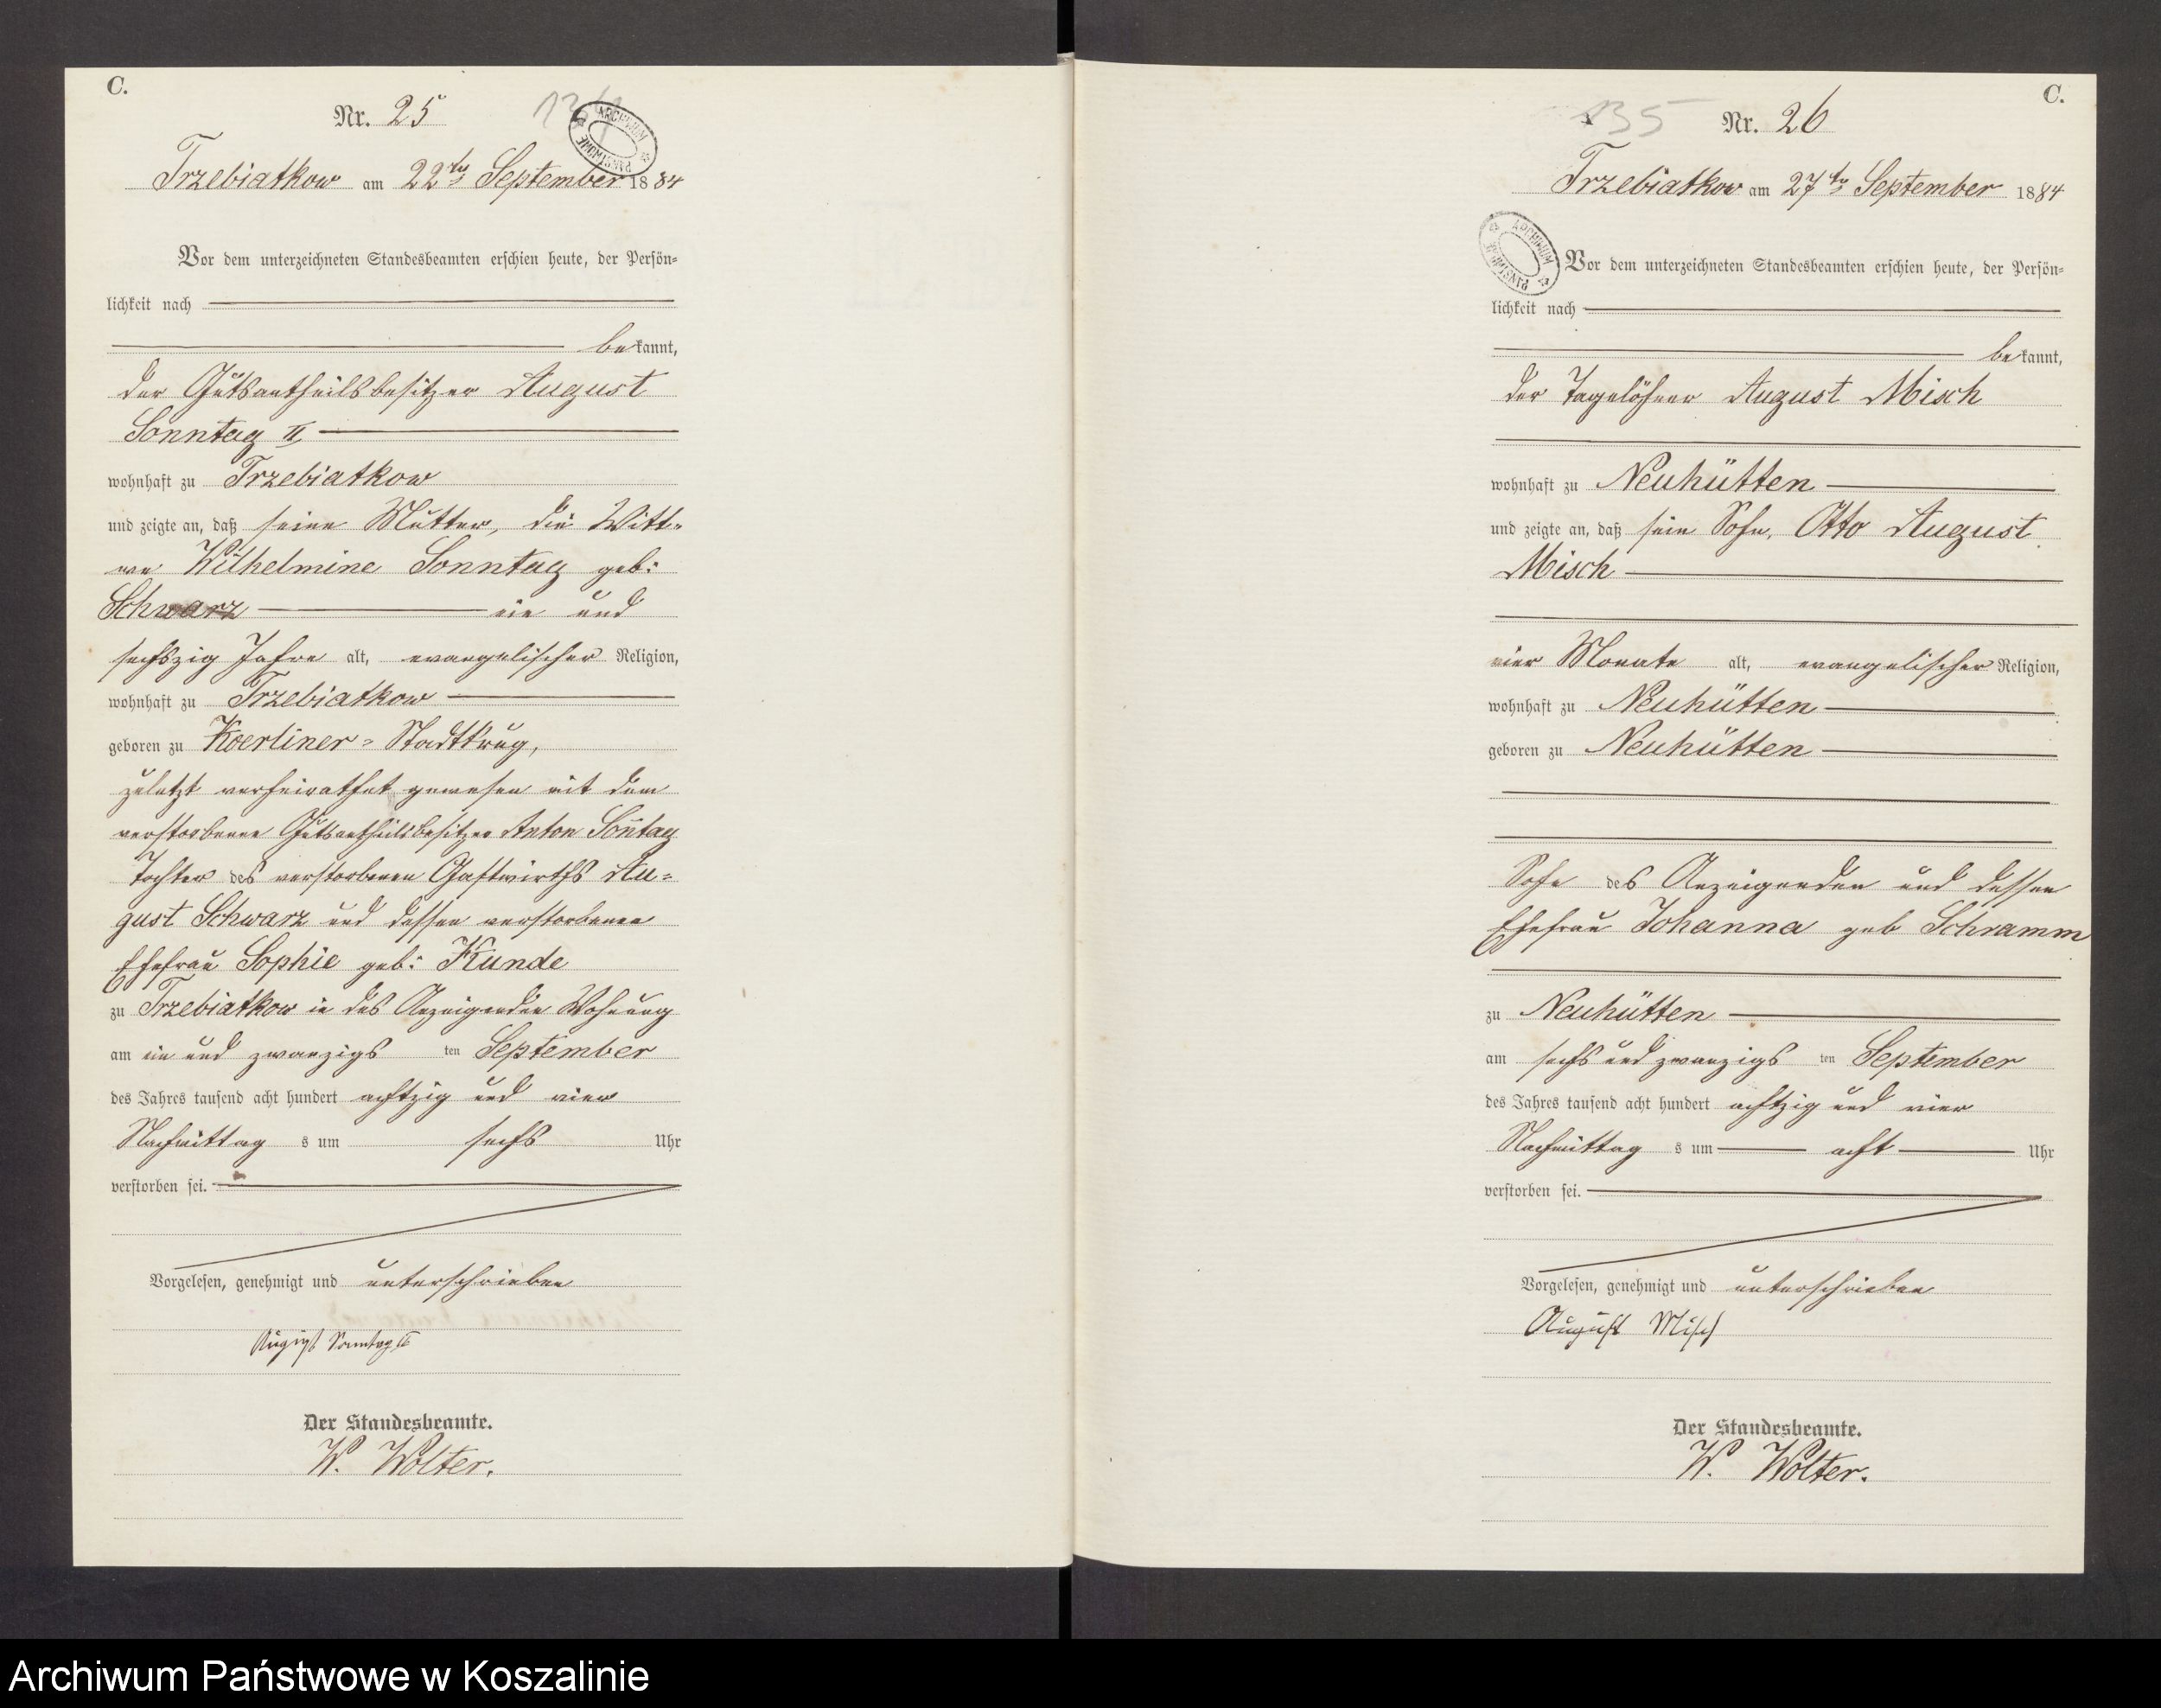 C.
Nr. 25
134
ARCHIWUM PAŃSTWOWE
Trzebiatkow am 22ten September 1884
Vor dem unterzeichneten Standesbeamten erschien heute, der Persön-
lichkeit nach
bekannt,
der Gutsantheilsbesitzer August
Sonntag II
wohnhaft zu Trzebiatkow
und zeigte an, daß seine Mutter, die Witt-
we Wilhelmine Sonntag geb:
Schwarz ein und
sechszig Jahre alt, evangelischer Religion,
wohnhaft zu Trzebiatkow
geboren zu Koerliner-Stadtkrug,
zuletzt verheirathet gewesen mit dem
verstorbenen Gutsantheilsbesitzer Anton Soñtag
Tochter des verstorbenen Gastwirths Au-
gust Schwarz und dessen verstorbenen
Ehefrau Sophie geb: Kunde
zu Trzebiatkow in des Anzeigenden Wohnung
am ein und zwanzigs ten September
des Jahres tausend acht hundert achtzig und vier
Nachmittag s um sechs Uhr
verstorben sei.
Vorgelesen, genehmigt und unterschrieben
August Sonntag II
Der Standesbeamte.
W. Wolter.
C.
135
Nr. 26
Trzebiatkow am 27ten September 1884
ARCHIWUM PAŃSTWOWE
Vor dem unterzeichneten Standesbeamten erschien heute, der Persön-
lichkeit nach
bekannt,
der Tagelöhner August Misch
wohnhaft zu Neuhütten
und zeigte an, daß sein Sohn, Otto August
Misch
vier Monate alt, evangelischer Religion,
wohnhaft zu Neuhütten
geboren zu Neuhütten
Sohn des Anzeigenden und dessen
Ehefrau Johanna geb Schramm
zu Neuhütten
am sechs und zwanzigs ten September
des Jahres tausend acht hundert achtzig und vier
Nachmittag s um acht Uhr
verstorben sei.
Vorgelesen, genehmigt und unterschrieben
August Misch
Der Standesbeamte.
W. Wolter.
Archiwum Państwowe w Koszalinie